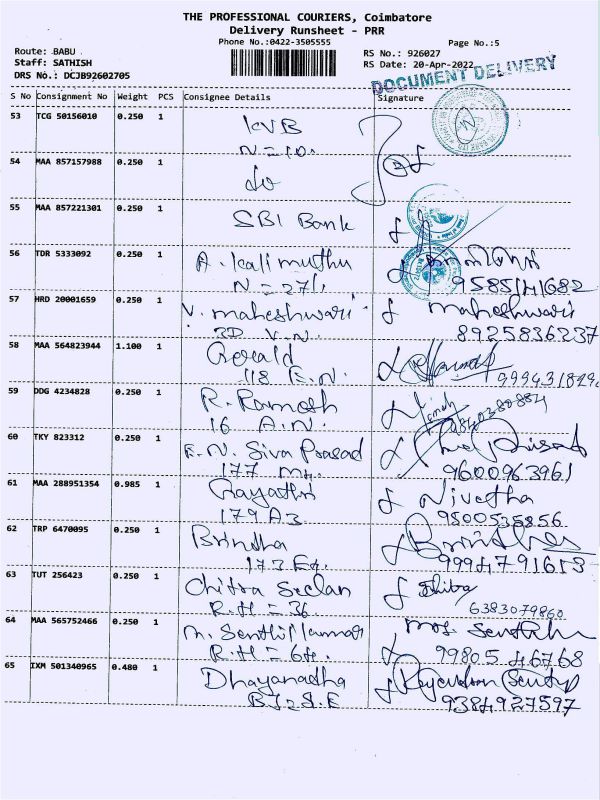 THE PROFESSIONAL COURIERS, Coimbatore
Delivery Runsheet - PRR
Phone No.:0422-3505555
Page No.:5
Route: BABU
RS No.: 926027
Staff: SATHISH
RS Date: 20-Apr-2022
DRS No.: DCJB92602705
DOCUMENT DELIVERY
S No Consignment No Weight PCS Consignee Details Signature
53 TCG 50156010 0.250 1 KVB
N=10.
54 MAA 857157988 0.250 1 do
55 MAA 857221301 0.250 1 SBI Bank
56 TDR 5333092 0.250 1 A. Kali muthu
N=27/.
9585141682
57 HRD 20001659 0.250 1 V. maheshwari maheshwari
3D V.N. 8925836237
58 MAA 564823944 1.100 1 Gerald
118 E.N.
59 DDG 4234828 0.250 1 R. Ramesh
16 A.N.
60 TKY 823312 0.250 1 E.N. Siva Prasad
177 9600963961
61 MAA 288951354 0.985 1 Gayathri Nivetha
179 A3 9500535856
62 TRP 6470095 0.250 1 Brindha
173 9994791613
63 TUT 256423 0.250 1 Chitra Seelan
R.H=36. 6383079860
64 MAA 565752466 0.250 1
R.H=64. 99805 46768
65 IXM 501340965 0.480 1 Dhayanadha
9384927597